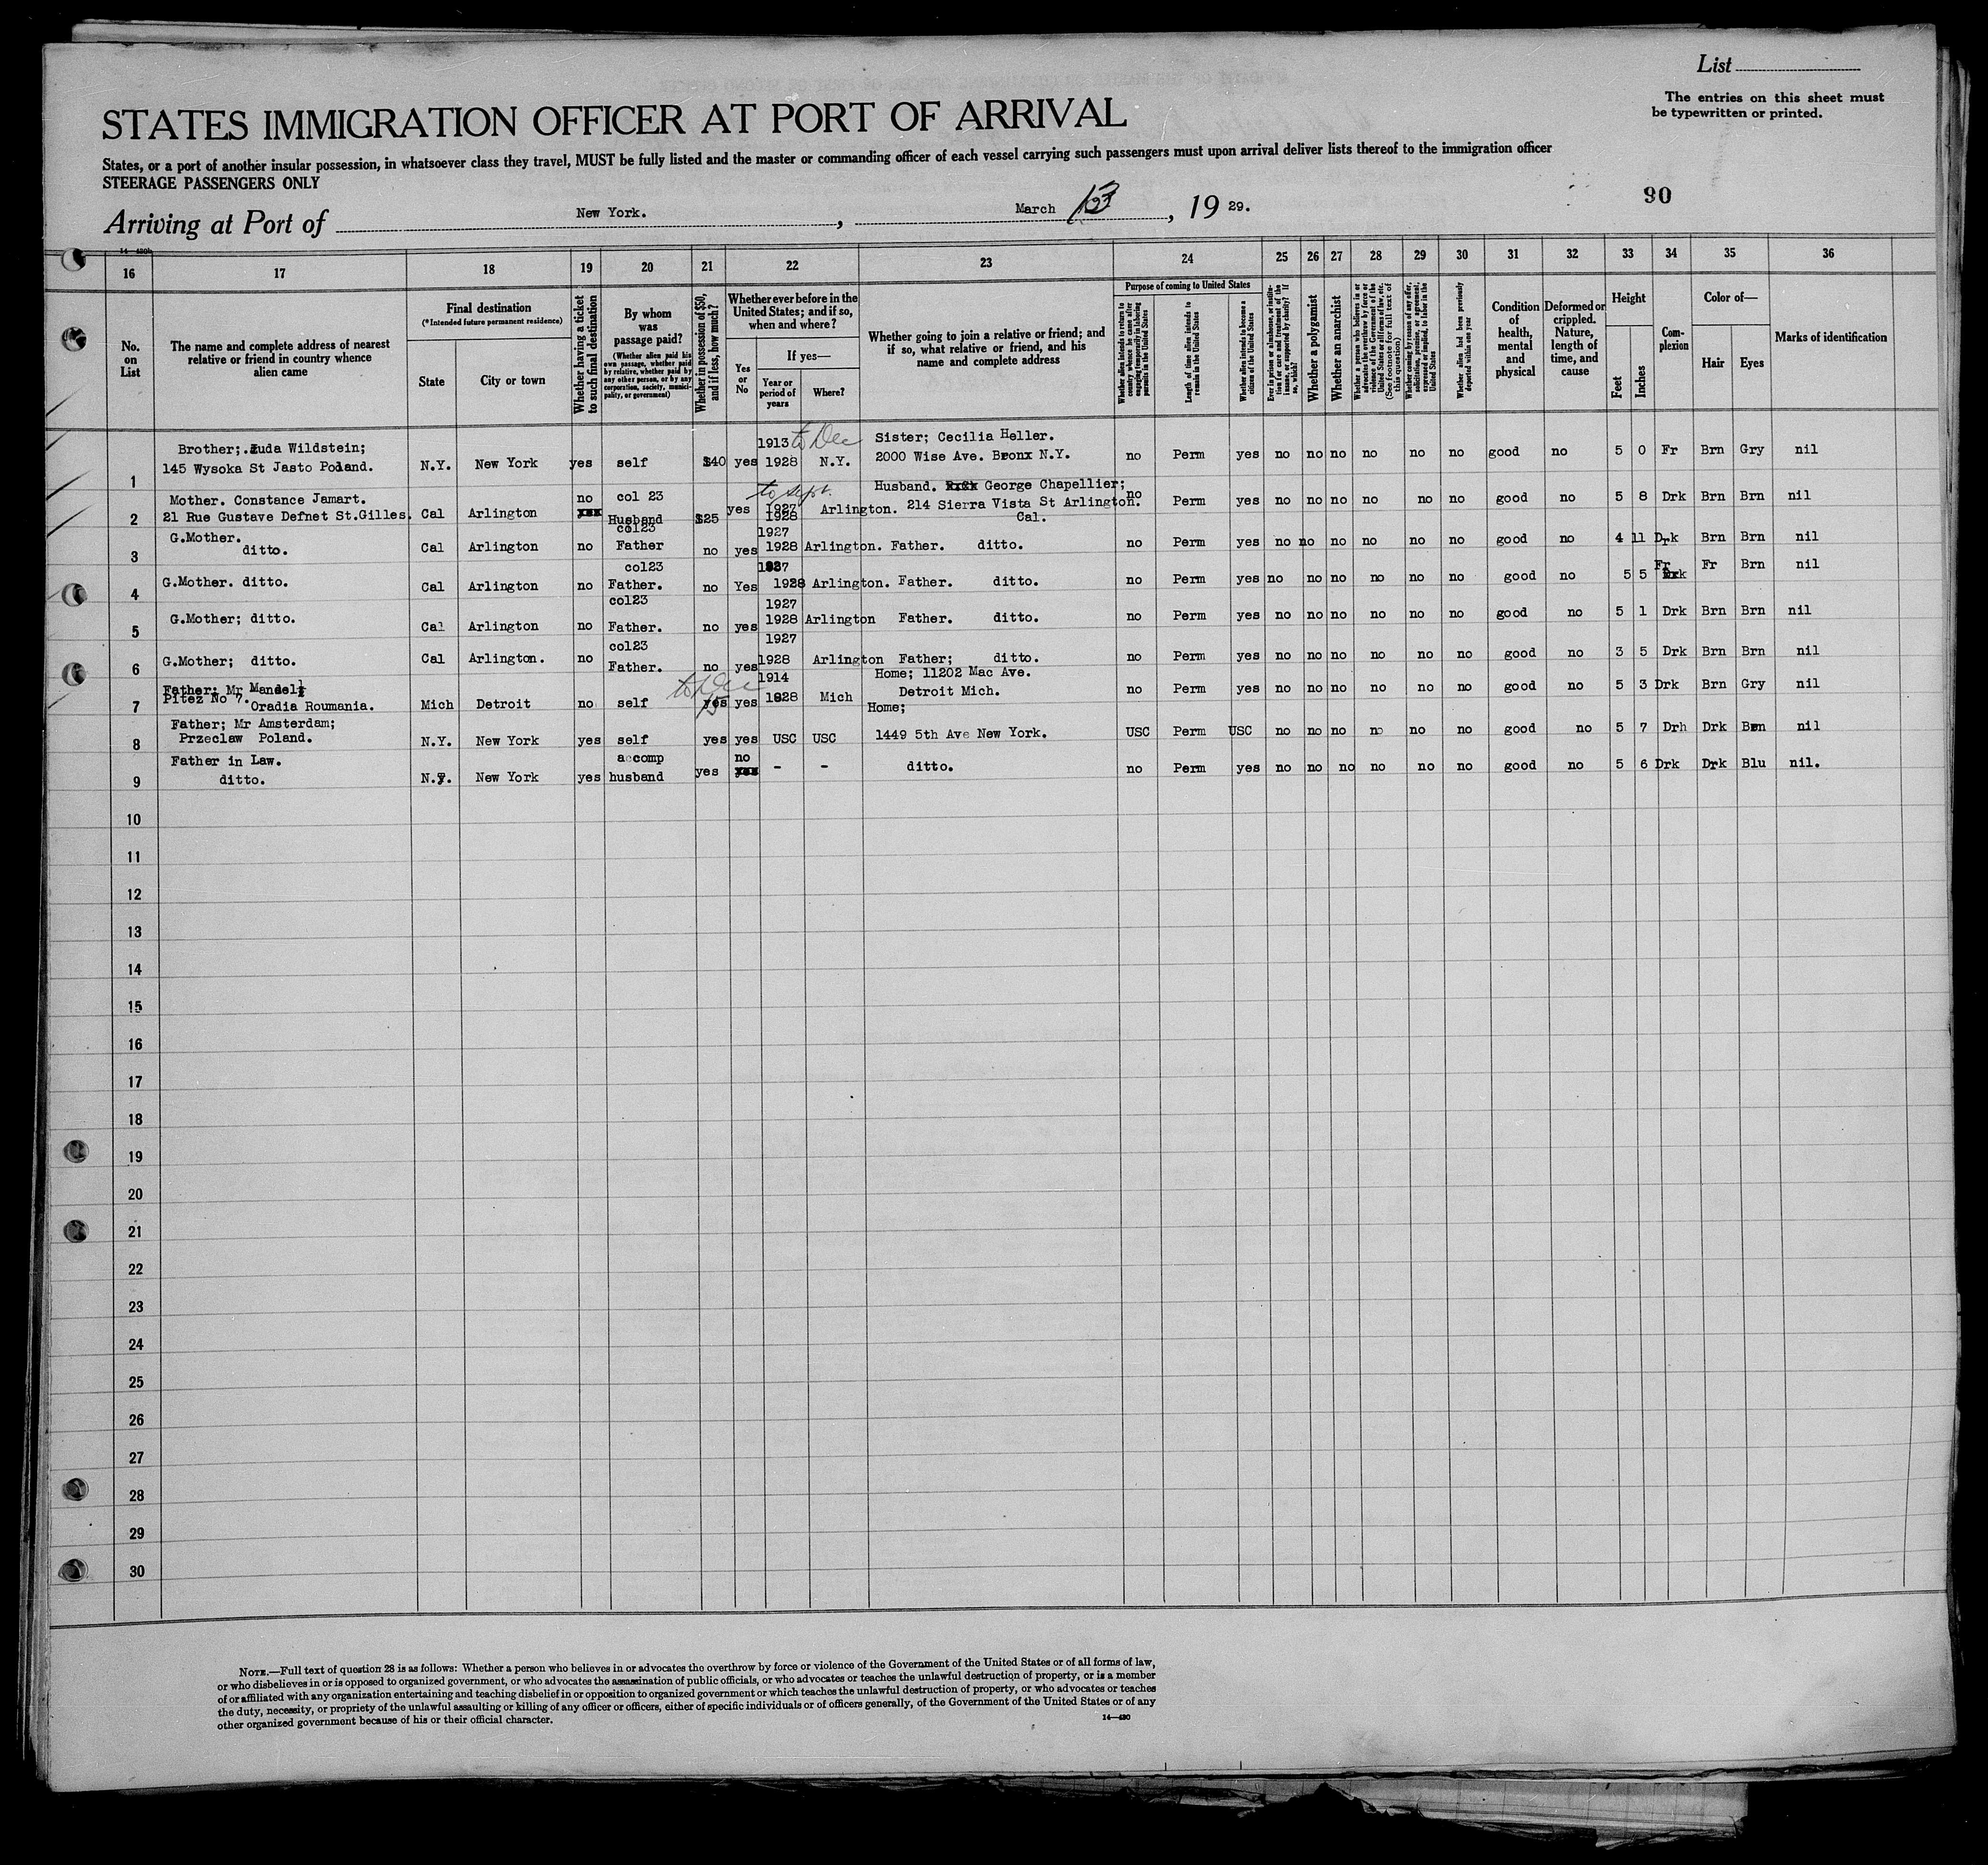 List
The entries on this sheet must
be typewritten or printed.
STATES IMMIGRATION OFFICER AT PORT OF ARRIVAL
States, or a port of another insular possession, in whatsoever class they travel, MUST be fully listed and the master or commanding officer of each vessel carrying such passengers must upon arrival deliver lists thereof to the immigration officer
STEERAGE PASSENGERS ONLY
30
Arriving at Port of New York. , March 13 , 19 29.
16 17 18 19 20 21 22 23 24 25 26 27 28 29 30 31 32 33 34 35 36
No. on List
The name and complete address of nearest relative or friend in country whence alien came
Final destination
(*Intended future permanent residence)
State
City or town
Whether having a ticket to such final destination
By whom was passage paid?
(Whether alien paid his own passage, whether paid by relative, whether paid by any other person, or by any corporation, society, municipality, or government)
Whether in possession of $50, and if less, how much?
Whether ever before in the United States; and if so, when and where?
Yes or No
If yes—
Year or period of years
Where?
Whether going to join a relative or friend; and if so, what relative or friend, and his name and complete address
Purpose of coming to United States
Whether alien intends to return to country whence he came after engaging temporarily in laboring pursuits in the United States
Length of time alien intends to remain in the United States
Whether alien intends to become a citizen of the United States
Ever in prison or almshouse, or institution for care and treatment of the insane, or supported by charity? If so, which?
Whether a polygamist
Whether an anarchist
Whether a person who believes in or advocates the overthrow by force or violence of the Government of the United States or all forms of law, etc. (See footnote for full text of this question)
Whether coming by reason of any offer, solicitation, promise, or agreement, expressed or implied, to labor in the United States
Whether alien had been previously deported within one year
Condition of health, mental and physical
Deformed or crippled. Nature, length of time, and cause
Height
Feet
Inches
Complexion
Color of—
Hair
Eyes
Marks of identification
1 Brother; Juda Wildstein; 145 Wysoka St Jasto Poland. N.Y. New York yes self $40 yes 1913 to Dec 1928 N.Y. Sister; Cecilia Heller. 2000 Wise Ave. Bronx N.Y. no Perm yes no no no no no no good no 5 0 Fr Brn Gry nil
2 Mother. Constance Jamart. 21 Rue Gustave Defnet St.Gilles. Cal Arlington no col 23 Husband $25 yes to Sept. 1927 1928 Arlington. Husband. George Chapellier; 214 Sierra Vista St Arlington. Cal. no Perm yes no no no no no no good no 5 8 Drk Brn Brn nil
3 G.Mother. ditto. Cal Arlington no col23 Father no yes 1927 1928 Arlington. Father. ditto. no Perm yes no no no no no no good no 4 11 Drk Brn Brn nil
4 G.Mother. ditto. Cal Arlington no col23 Father. no Yes 1927 1928 Arlington. Father. ditto. no Perm yes no no no no no no good no 5 5 Fr Fr Brn nil
5 G.Mother; ditto. Cal Arlington no col23 Father. no yes 1927 1928 Arlington Father. ditto. no Perm yes no no no no no no good no 5 1 Drk Brn Brn nil
6 G.Mother; ditto. Cal Arlington. no col23 Father. no yes 1927 1928 Arlington Father; ditto. no Perm yes no no no no no no good no 3 5 Drk Brn Brn nil
7 Father; Mr Mandel Pitez No 7. Oradia Roumania. Mich Detroit no self yes yes to Dec 1914 1928 Mich Home; 11202 Mac Ave. Detroit Mich. no Perm yes no no no no no no good no 5 3 Drk Brn Gry nil
8 Father; Mr Amsterdam; Przeclaw Poland. N.Y. New York yes self yes yes USC USC Home; 1449 5th Ave New York. USC Perm USC no no no no no no good no 5 7 Drh Drk Brn nil
9 Father in Law. ditto. N.Y. New York yes accomp husband yes no - - ditto. no Perm yes no no no no no no good no 5 6 Drk Drk Blu nil.
10
11
12
13
14
15
16
17
18
19
20
21
22
23
24
25
26
27
28
29
30
NOTE.—Full text of question 28 is as follows: Whether a person who believes in or advocates the overthrow by force or violence of the Government of the United States or of all forms of law,
or who disbelieves in or is opposed to organized government, or who advocates the assassination of public officials, or who advocates or teaches the unlawful destruction of property, or is a member
of or affiliated with any organization entertaining and teaching disbelief in or opposition to organized government or which teaches the unlawful destruction of property, or who advocates or teaches
the duty, necessity, or propriety of the unlawful assaulting or killing of any officer or officers, either of specific individuals or of officers generally, of the Government of the United States or of any
other organized government because of his or their official character.
14—430